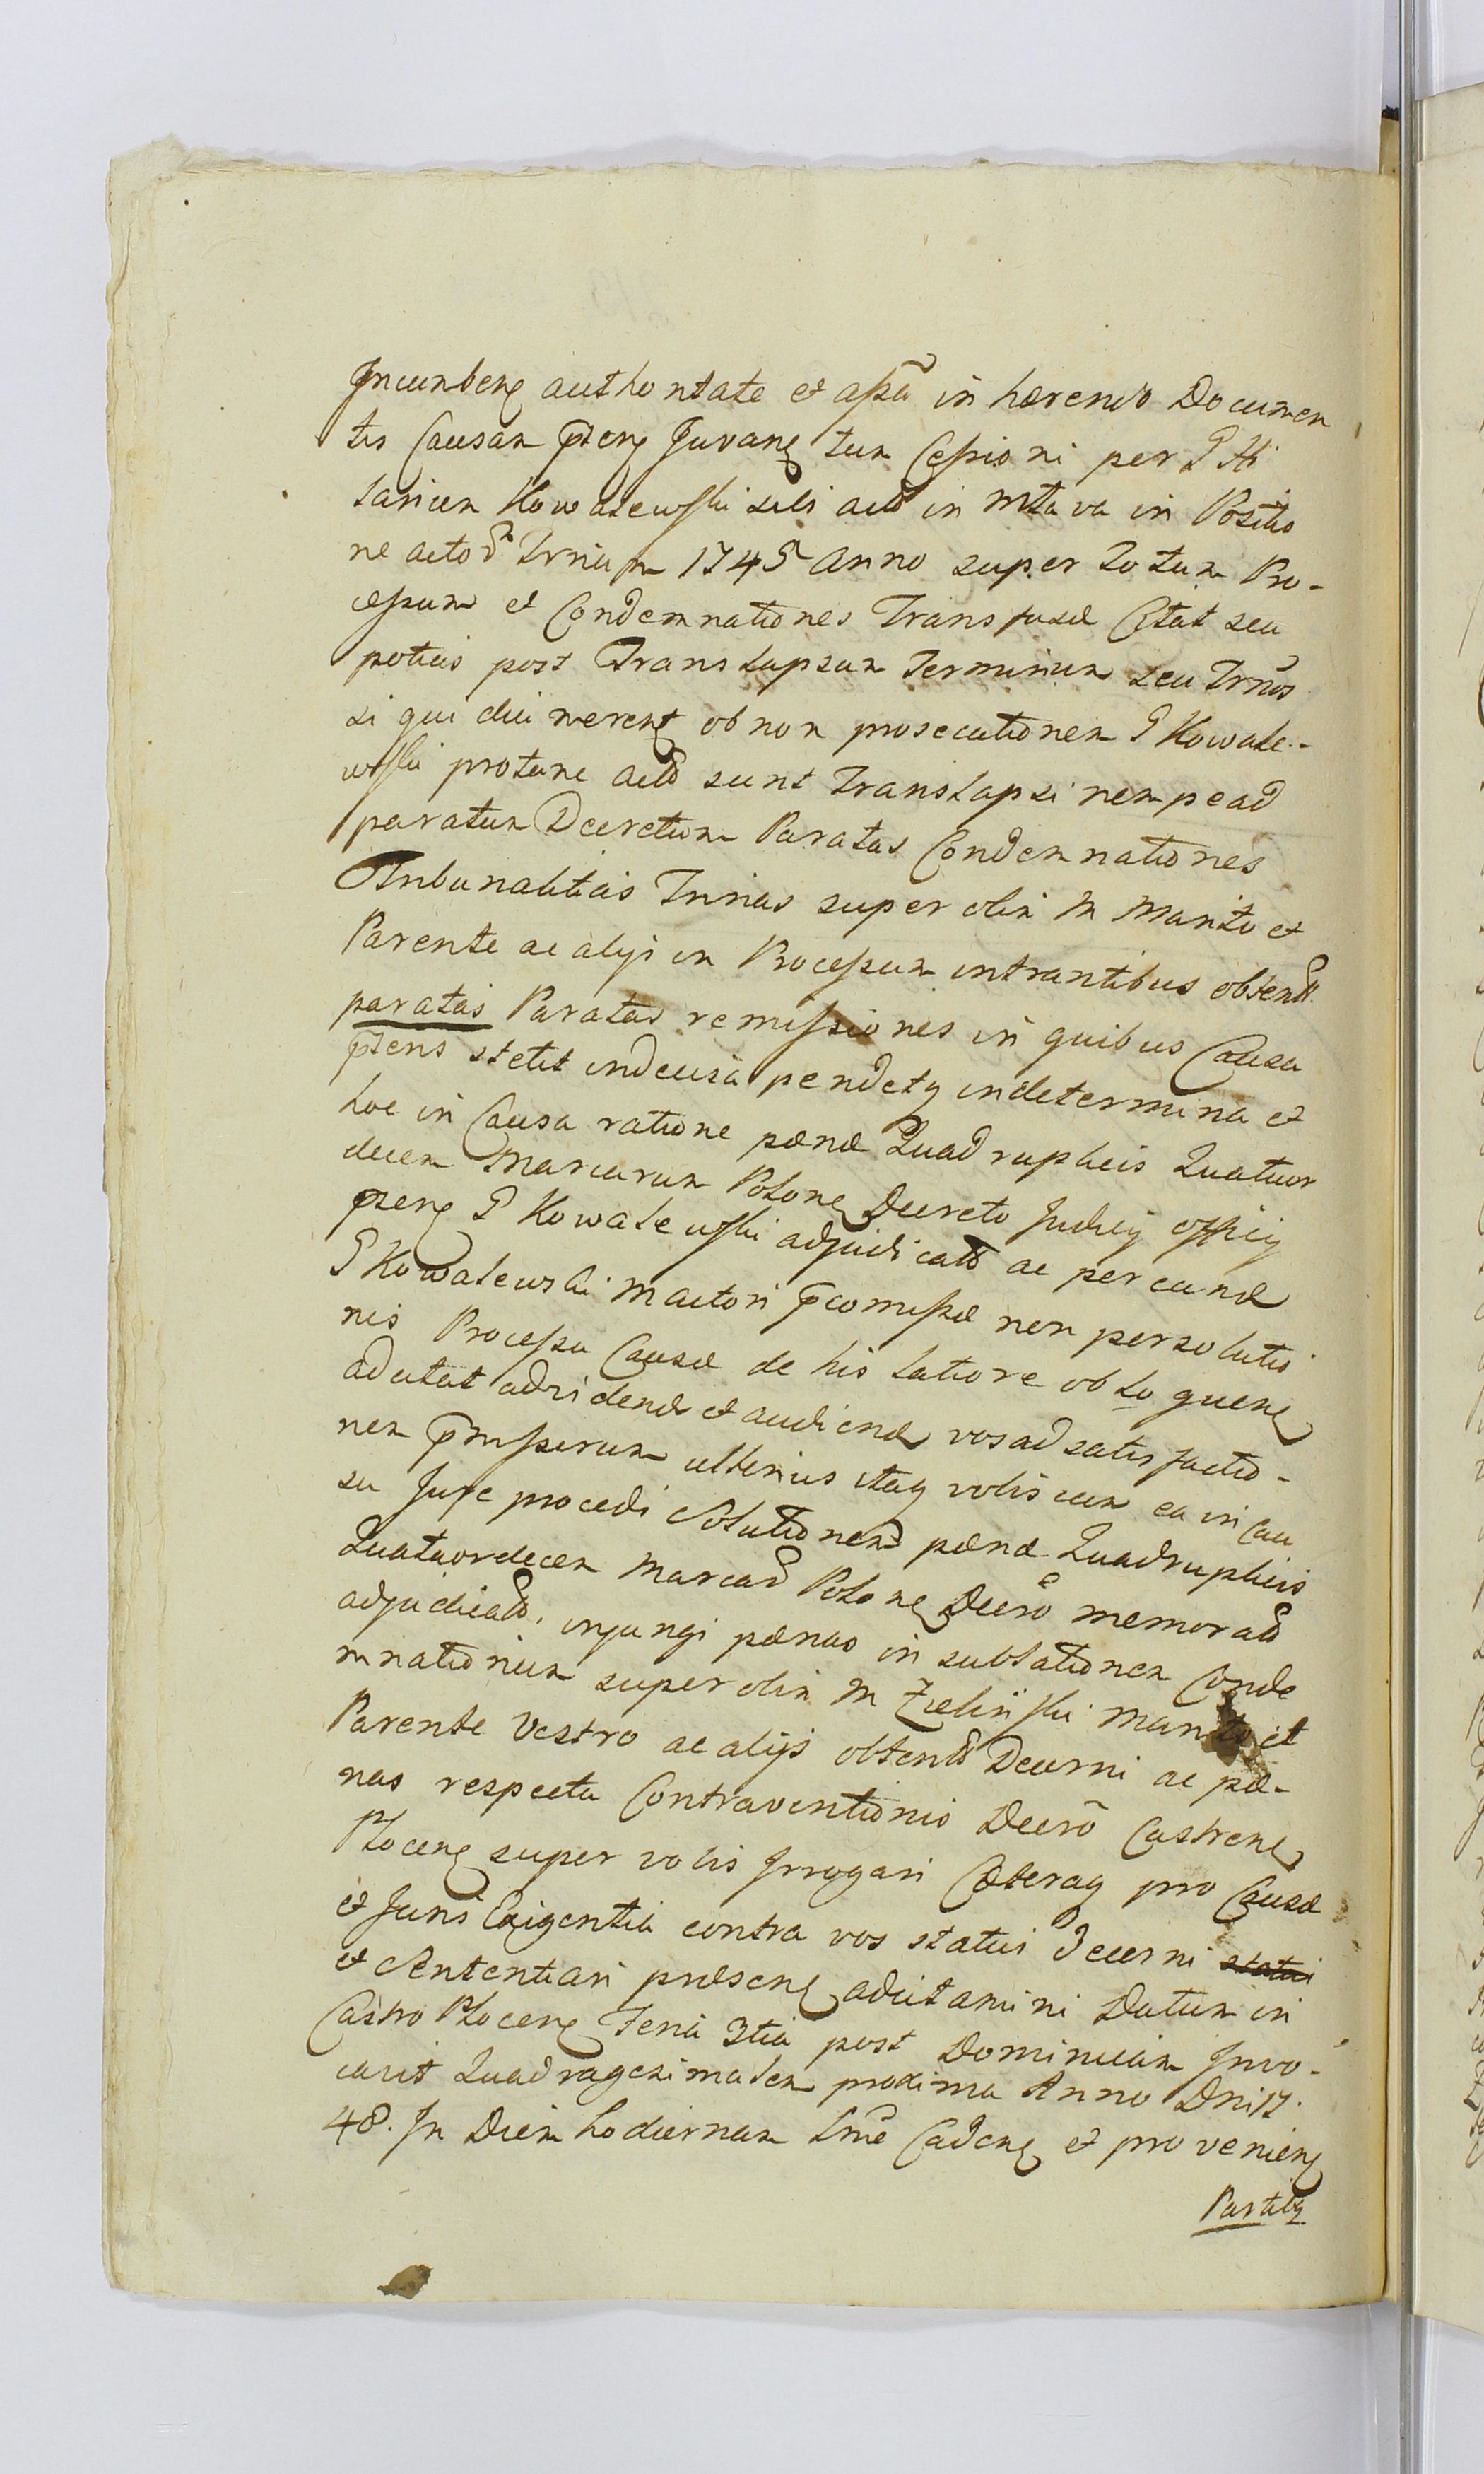 Incumben authoritate et aẜsa in hærendo Documen
tis Causam pten Iuvan tum Ceẜsioni per G Hi
larium Kowalewẜki sibi act in Mlava in Positio
ne actor Trium 1745 anno super totum Pro-
ceẜsum et Condemnationes Transfusæ Citat seu
potius post Translapsum Terminum seu Trnos
si qui diu neren ob non prosecutionem G Kowale-
wẜki protunc act sunt Translapsi nempe ad
paratum Decretum Paratas Condemnationes
Tribunalitias Trinas super olim M Marito et
Parente ac alijs in Proceẜsum intrantibus obtent
paratas Paratas remiẜsiones in quibus Causa
ptens stetit indecisa pendetq indetermina et
hoc in Causa ratione pænæ Quadruplicis Quatuor
decem Marcarum Polon Decreto Iudicij officij
pten G Kowalewẜki adjudicat ac per eund
G Kowalewski M actori pcomiẜsæ non persolutio
nis Proceẜsu Causæ de his latiore ob lo quen
adcitat ad vidend et audiend vos ad satisfactio-
nem pmiẜsorum ulterius itaq vobis cum ea in Cau
sa Iure procedi Solutionem pænæ Quadruplicis
Quatuordecem Marcar Polon Decro memorat
adjudicat, injungi pænas in sublationem Conde
mnationum super olim M Zielinẜki Marito et
Parente Vestro ac alijs obtent Decerni ac pæ-
nas respectu Contraventionis Decro Castren
Plocen super vobis Irrogari Cæteraq pro Causæ
et Juris Exigentia contra vos statui Decerni statui
et Sententiari præsen adcitamini Datum in
Castro Plocen Feria 3tia post Dominicam Invo-
cavit Quadragesimalem proxima Anno Dni 17
48. In Diem hodiernam lme Caden et provenien
Partibq